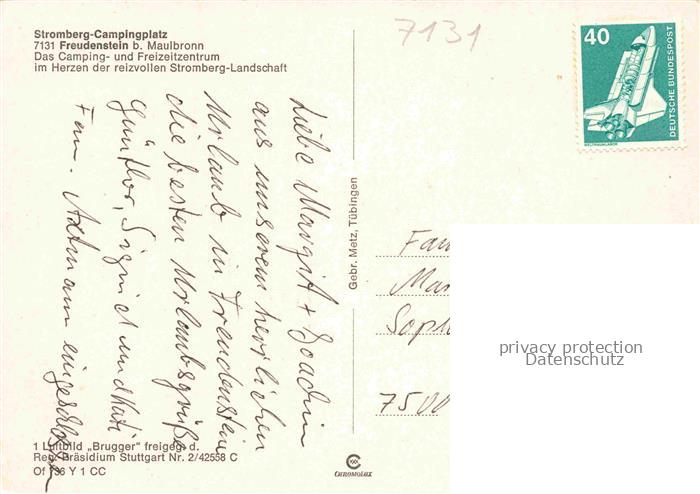 Stromberg-Campingplatz
7131 Freudenstein b. Maulbronn
Das Camping- und Freizeitzentrum
im Herzen der reizvollen Stromberg-Landschaft
7131
40
DEUTSCHE BUNDESPOST
WELTRAUMLABOR
Liebe Margit + Joachim
aus unserem herrlichen
Urlaub in Freudenstein
die besten Urlaubsgrüße
Günther, Sigrid und Kati
Fam. Axtmann eingeschlossen
Gebr. Metz, Tübingen
Fam
Mar
Soph
7500
privacy protection
Datenschutz
1 Luftbild „Brugger" freigeg. d.
Reg. Präsidium Stuttgart Nr. 2/42558 C
Of 196 Y 1 CC
CHROMOLUX